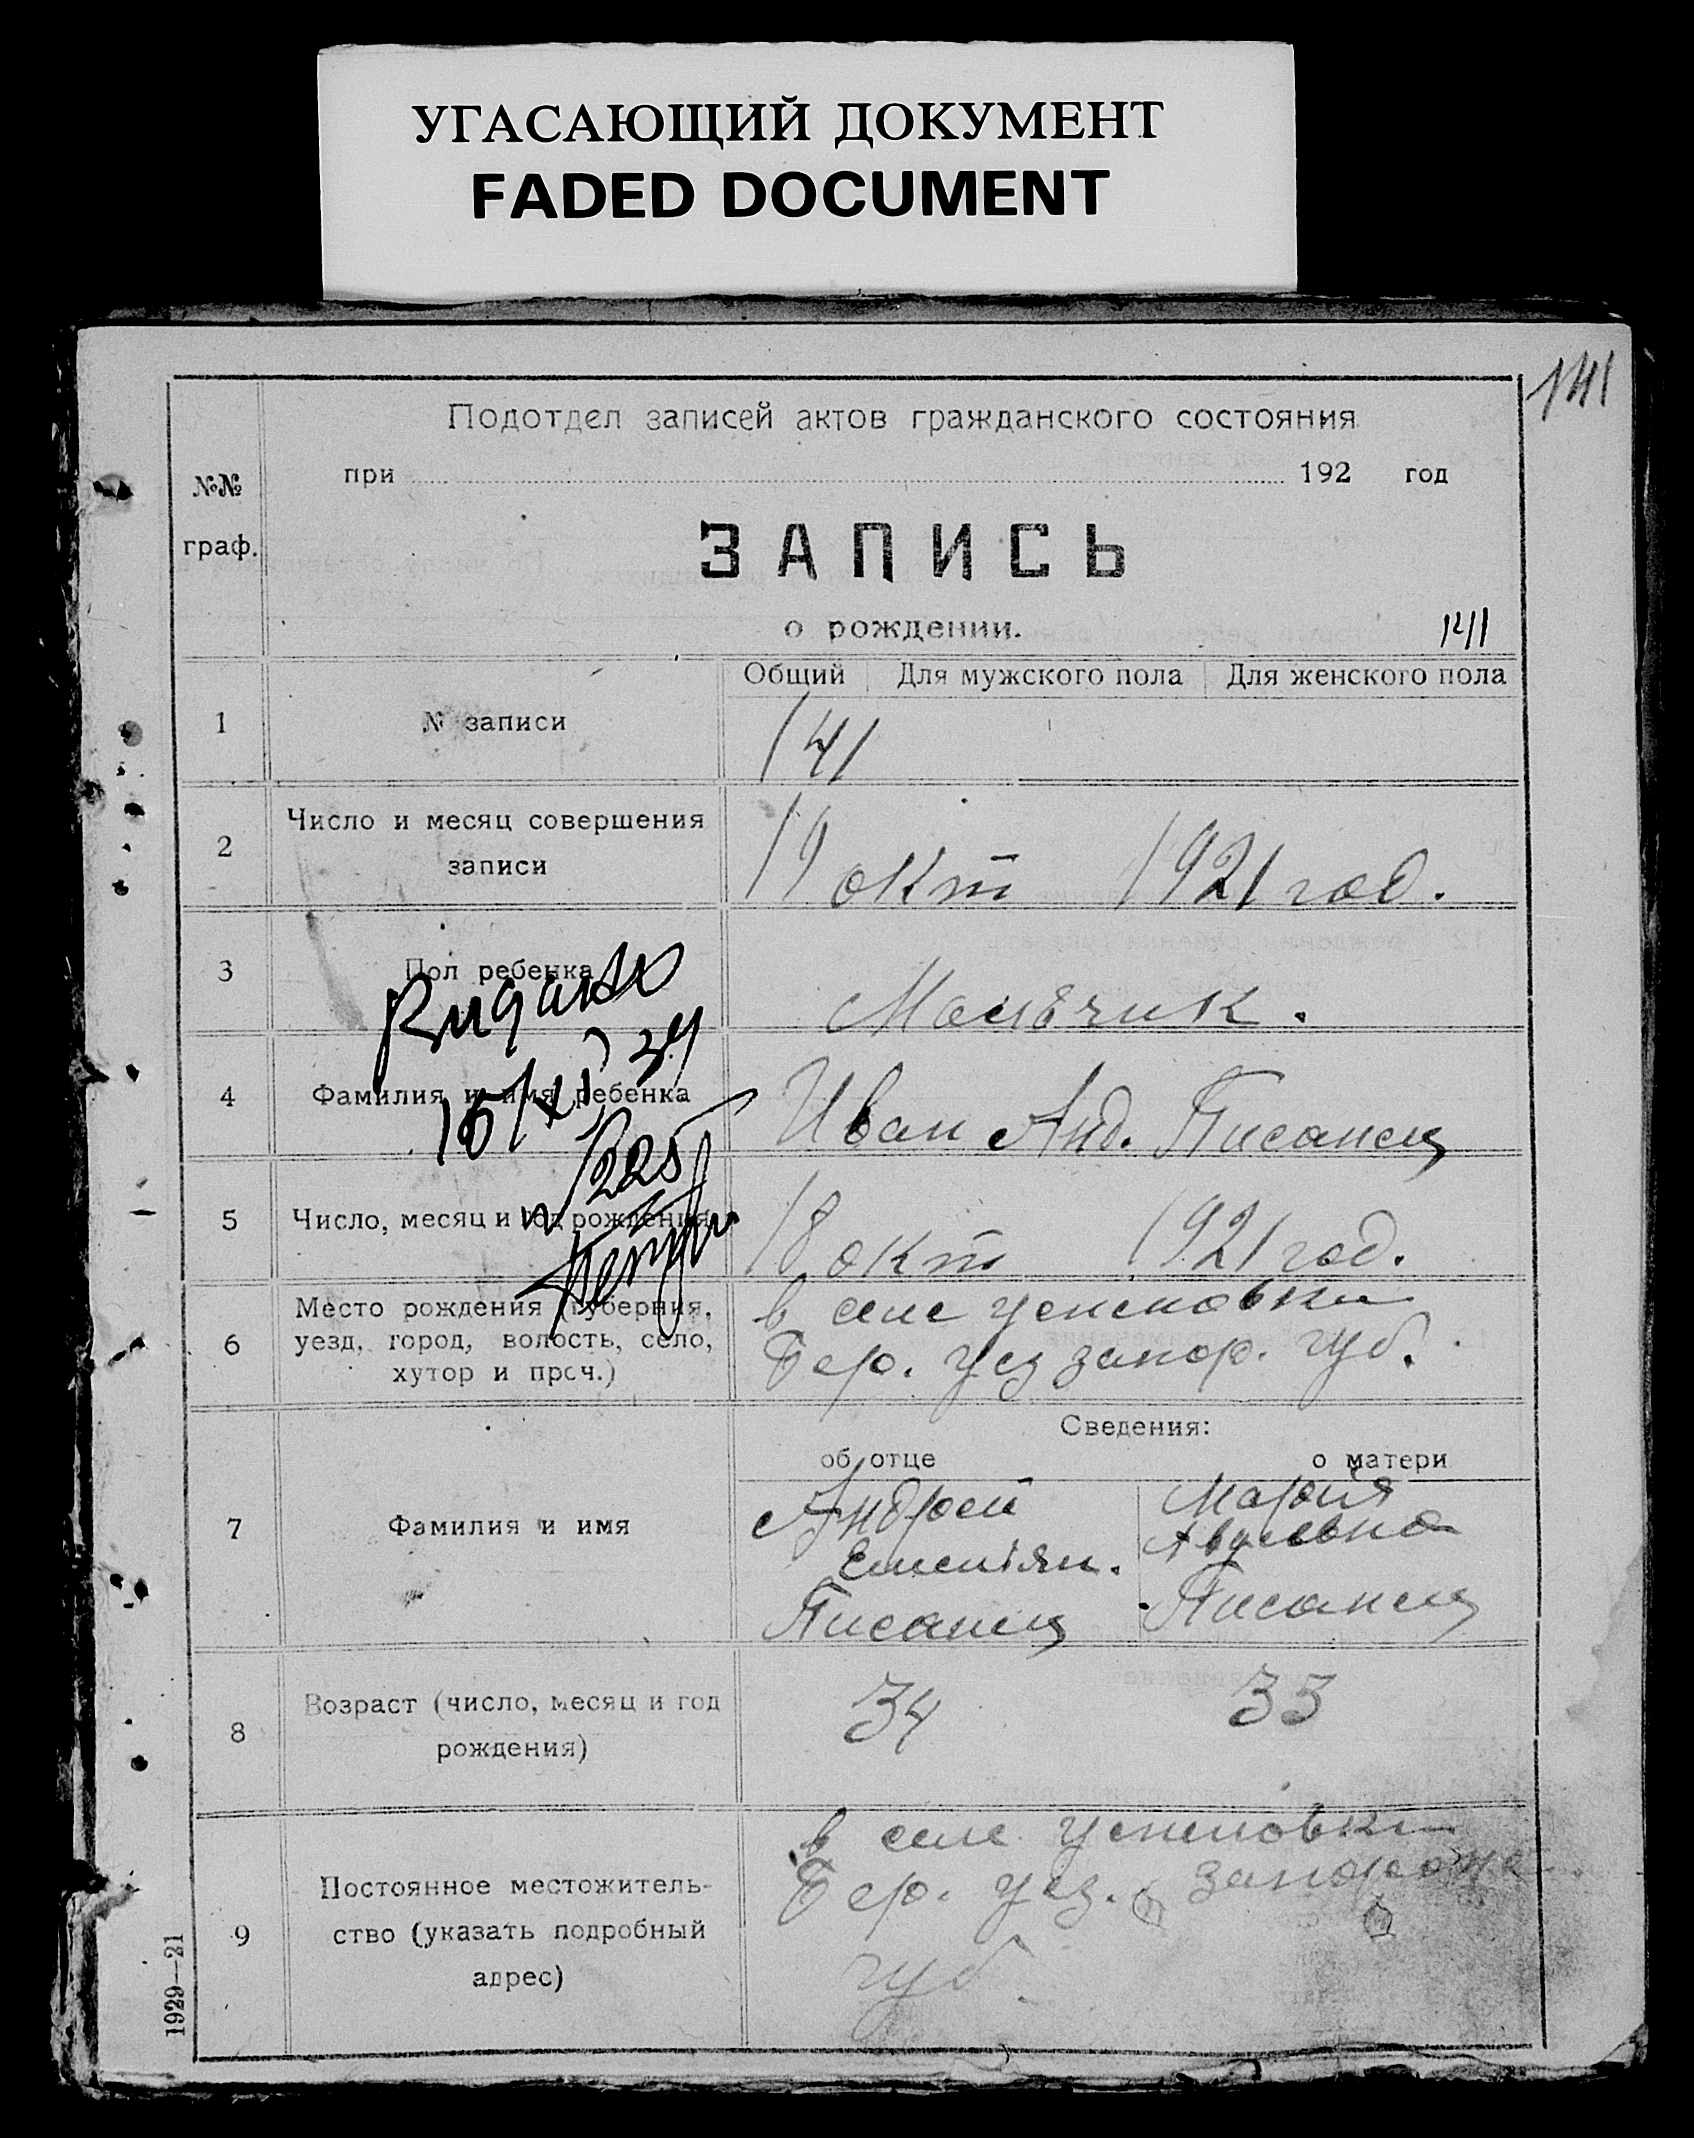 УГАСАЮЩИЙ ДОКУМЕНТ
FADED DOCUMENT
141
Подотдел записей актов гражданского состояния
№№
граф.
при 192 год
ЗАПИСЬ
о рождении.
141
Общий Для мужского пола Для женского пола
1 № записи 141
2 Число и месяц совершения
записи
19 окт 1921 год.
3 Пол ребенка
Мальчик.
4 Фамилия и имя ребенка
Иван Анд. Писанец
15/XI 34
5 Число, месяц и год рождения
18 окт 1921 год.
6 Место рождения (губерния,
уезд, город, волость, село,
хутор и проч.)
в селе Успеновки
Бер. уез запор. губ.
Сведения:
об отце о матери
7 Фамилия и имя
Андрей
Писанец
Мария
Писанец
8 Возраст (число, месяц и год
рождения)
34 33
9 Постоянное местожитель-
ство (указать подробный
адрес)
в селе Успеновки
Бер. уез.
губ
1929—21